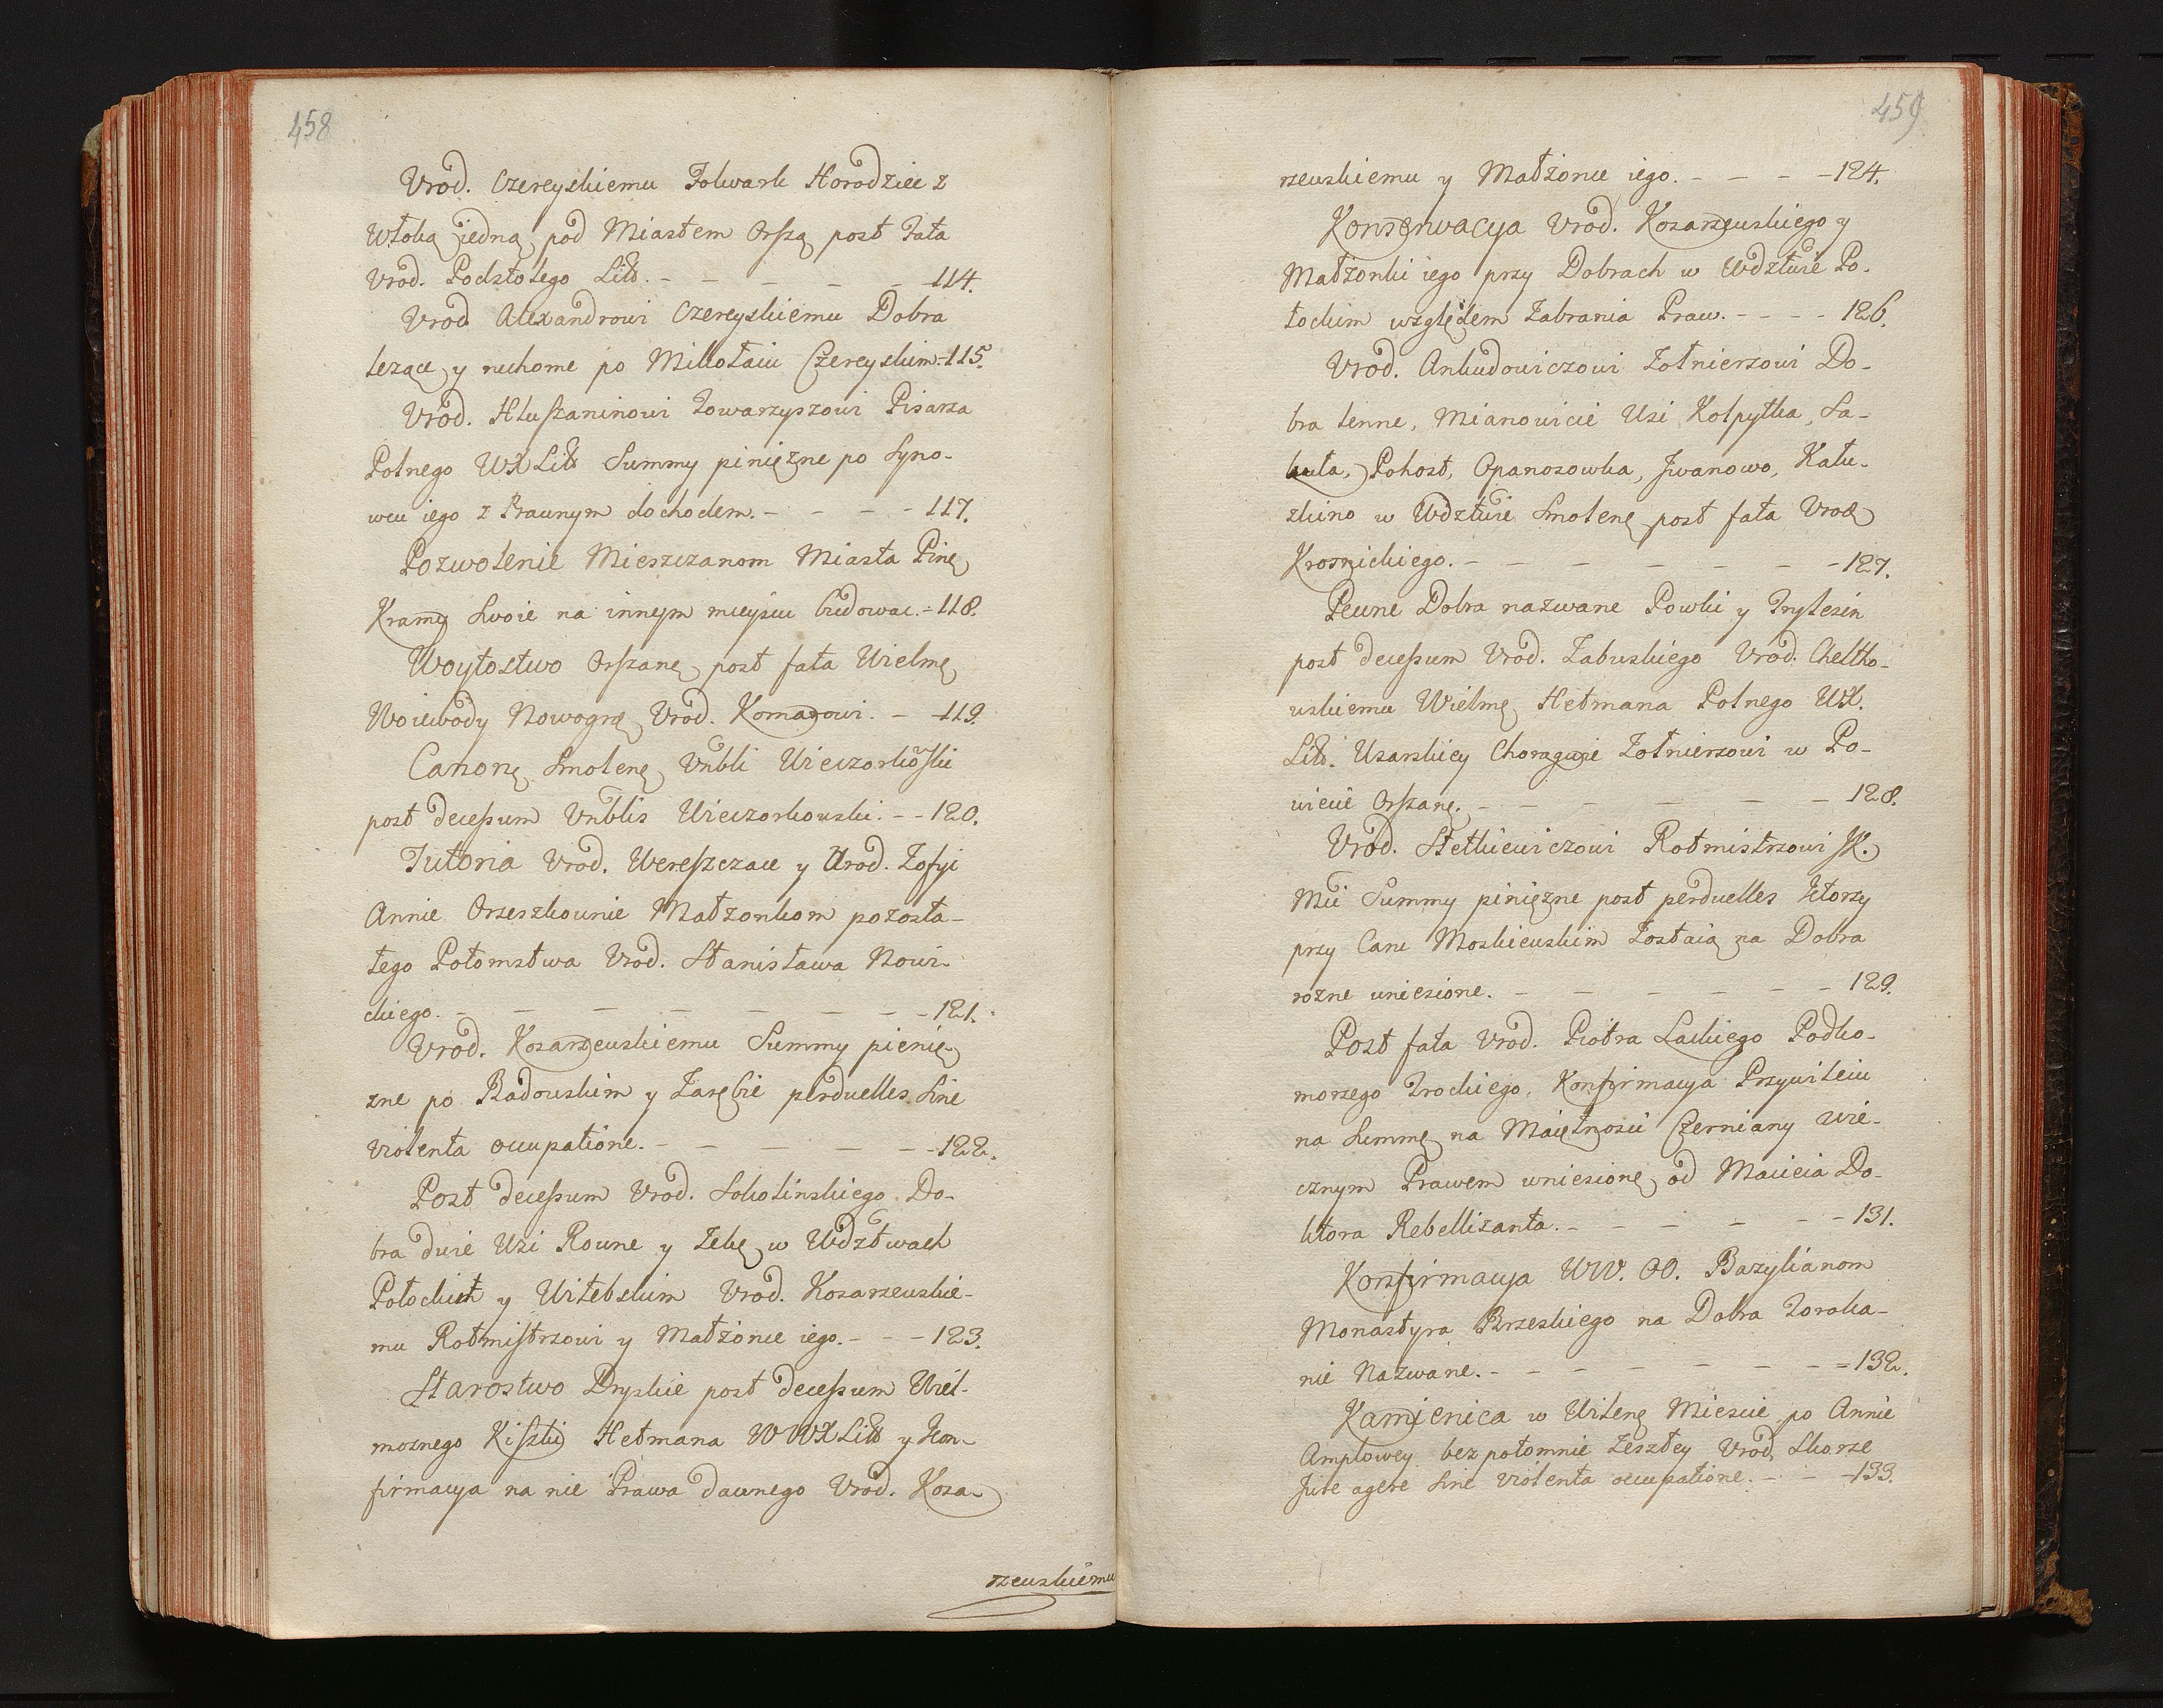 458
Vrod. Czereyskiemu Folwark Horodziec z
Włoką iedną pod Miastem Orszą post Fata
Vrod. Podstolego Litt. - - - - - 114.
Vrod Alexandrowi Czereyskiemu Dobra
lezące y ruchome po Mikołaiu Czereyskim - 115.
Vrod. Hluszaninowi Towarzyszowi Pisarza
Polnego WXLitt Summy pinięzne po Syno-
wcu iego z Prawnym dochodem. - - - - 117.
Pozwolenie Mieszczanom Miasta Pinę
Kramy Swoie na innym mieyscu budowac. - 118.
Woytostwo Orszanę post fata Wielmę
Woiewody Nowogrę Vrod. Komarowi. - - 119.
Canonę Smolenę Vnbli Wieczorkoski
post decessum Vnblis Wieczorkowski. - - 120.
Tutoria Vrod. Wereszczace y Urod. Zofyi
Annie Orzeszkownie Małzonkom pozosta-
łego Potomstwa Vrod. Stanisława Nowi-
ckiego. - - - - - - - 121.
Vrod. Kosarzewskiemu Summy pienię
zne po Radowskim y Zarębie perduelles Sine
violenta occupatione. - - - - - 122.
Post decessum Vrod. Sokolinskiego Do-
bra dwie Wsi Rowne y Zelę w Wdztwach
Połockich y Witebskim Vrod. Kosarzewskie-
mu Rotmistrzowi y Małzonce iego. - - - 123.
Starostwo Dryskie post decessum Wiel-
moznego Kiszki Hetmana WWXLitt y Kon-
firmacya na nie Prawa dawnego Vrod. Kosa-
rzewskiemu
459
rzewskiemu y Małżonce iego. - - - - 124.
Konserwacya Vrod. Kosarzewskiego y
Małżonki iego przy Dobrach w Wdztwie Po-
łockim względem Zabrania Praw. - - - - 126.
Vrod. Ankudowiczowi Zołnierzowi Do-
bra lenne, Mianowicie Wsi Kolpytka, Sa-
kuta, Pohost, Opanosowka, Jwanowo, Katu-
szkino w Wdztwie Smolenę post fata Vrod
Krosnickiego. - - - - - - - 127.
Pewne Dobra nazwane Powki y Trylesin
post decessum Vrod. Zabuskiego Vrod. Chełko-
wskiemu Wielmę Hetmana Polnego WX.
Litt. Usarskiey Chorągwie Zołnierzowi w Po-
wiecie Orszanę. - - - - - - 128.
Vrod. Stetkiewiczowi Rotmistrzowi JK.
Mci Summy piniężne post perduelles Ktorzy
przy Caru Moskiewskim Zostaią na Dobra
rozne wniesione. - - - - - - - 129.
Post fata Vrod. Piotra Lackiego Podko-
morzego Trockiego, Konfirmacya Przywileiu
na Summę na Maiętnosci Czerniany wie-
cznym Prawem wniesionę od Macieia Do-
ktora Rebellizanta. - - - - - - 131.
Konfirmacya WW. OO. Bazylianom
Monastyra Brzeskiego na Dobra Toroka-
nie Nazwane. - - - - - - - 132.
Kamienica w Wilenę Miescie po Annie
Amplowey bezpotomnie Zeszłey Vrod. Skorze
Jure agere Sine violenta occupatione. - - - 133.